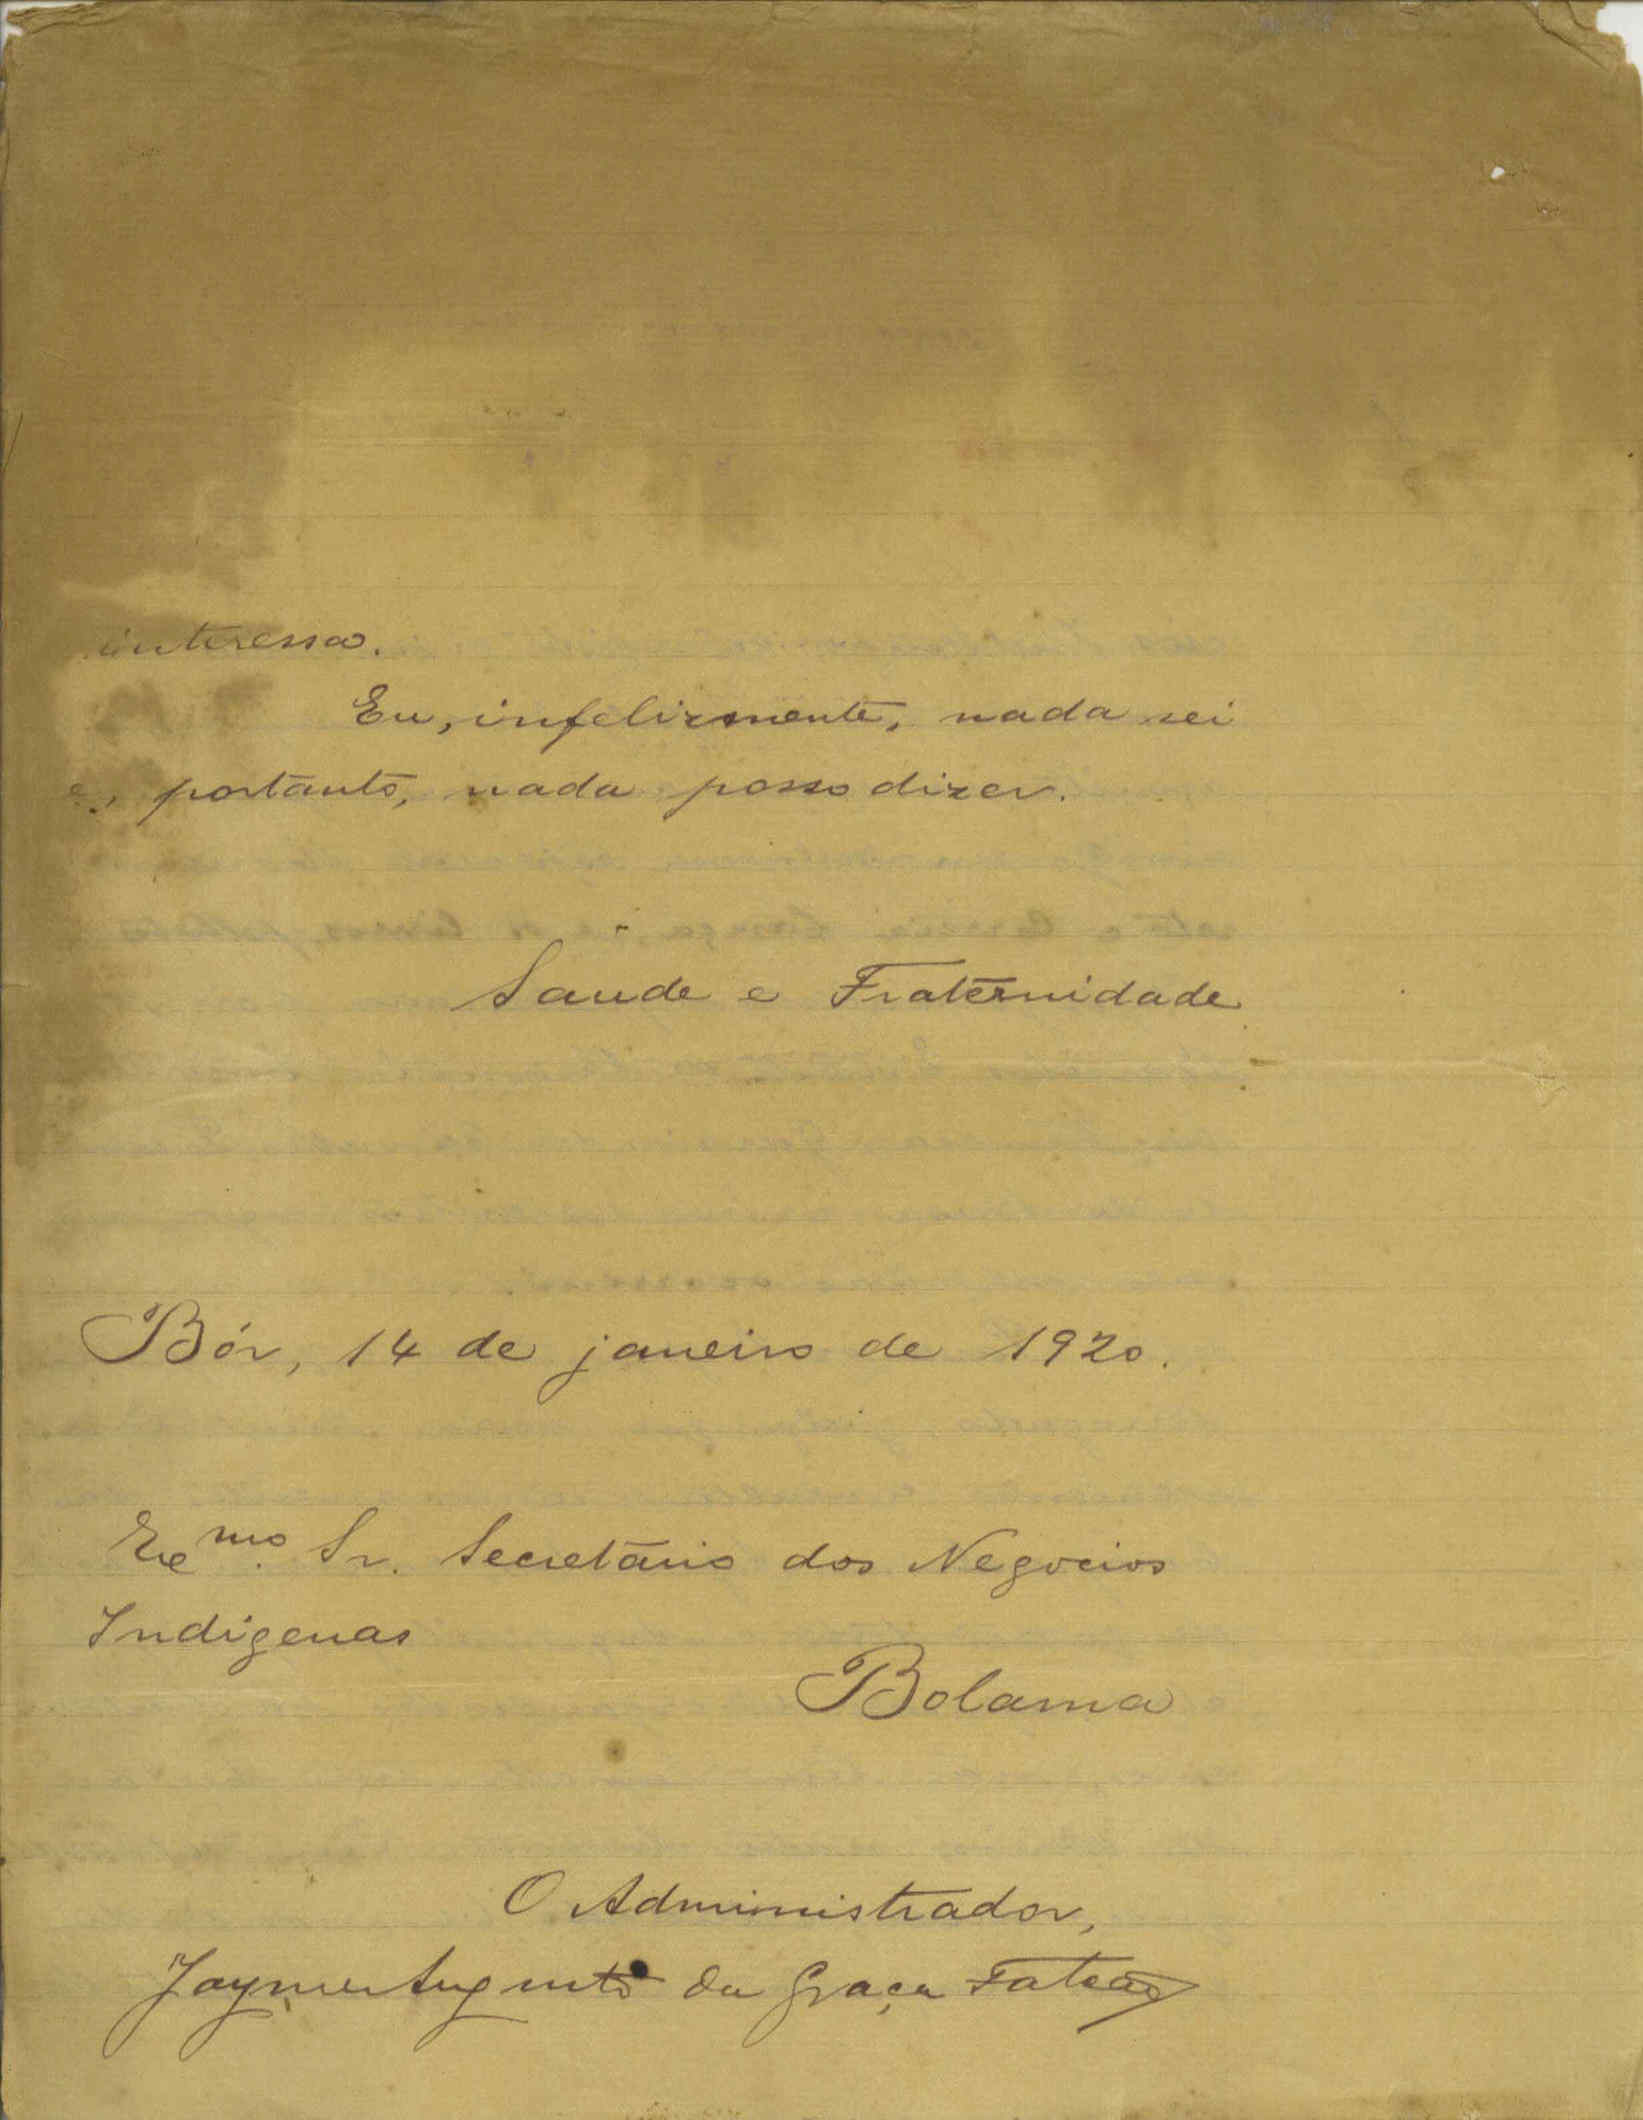 interessa.
Eu, infelizmente, nada sei
e, portanto, nada posso dizer.
Saude e Fraternidade
Bór, 14 de janeiro de 1920.
Exe.mo Sr. Secretário dos Negocios
Indigenas
Bolama
O Administrador,
Jayme Augusto da Graça Falcão